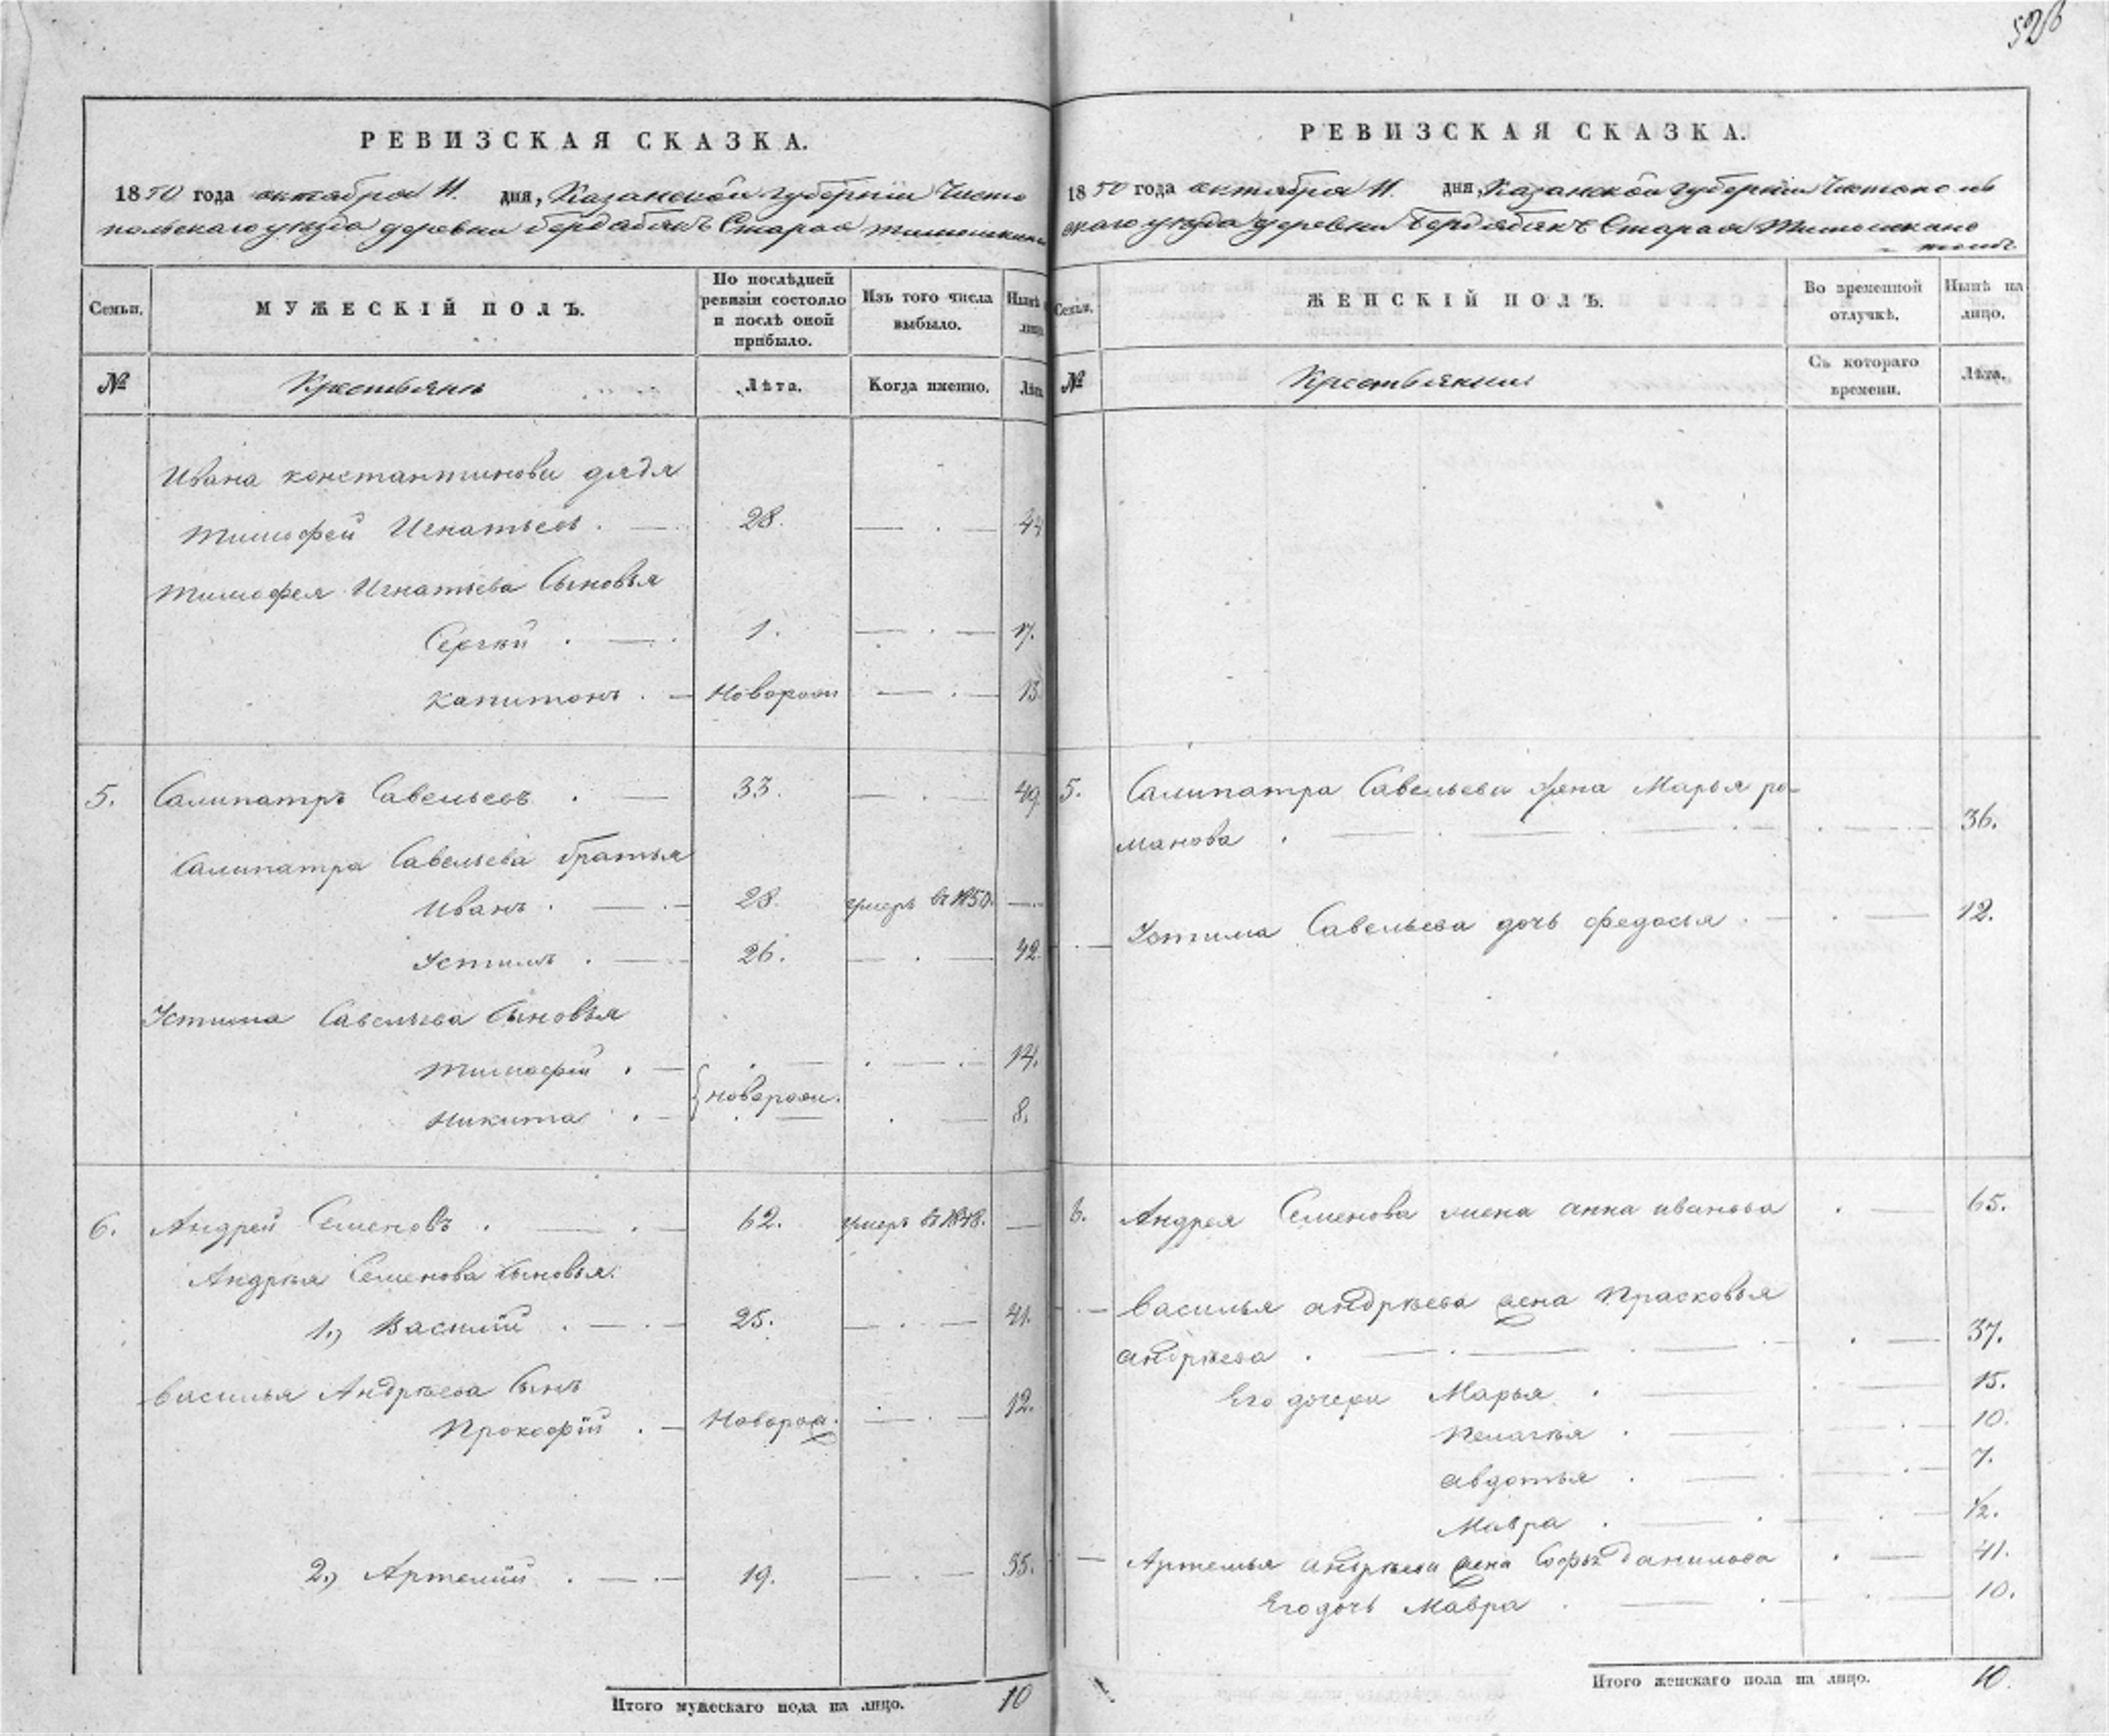 526
РЕВИЗСКАЯ СКАЗКА.
1850 года октября 11. дня, Казанской губерніи Чисто
польскаго уезда деревни Бердебякъ Старая тимошкина
Семьи.
МУЖЕСКІЙ ПОЛЪ.
По послѣдней ревизіи состояло и послѣ оной прибыло.
Изъ того числа выбыло.
Нынѣ лицо
№
Крестьянъ
Лѣта.
Когда именно.
Лѣта
Ивана константинова дядя
Тимофей Игнатьевъ . — 28. — . — 44
Тимофея Игнатьева Сыновья
Сергѣй . — . 1. — . — 17.
Капитонъ . — Новорож — . — 13.
5. Салипатръ Савельевъ . — 33. — . — 49
Салипатра Савельева братья
Иванъ . — . — 28. умеръ въ 1850. —
Устимъ . — 26. — . — 42
Устима Савельева Сыновья
Тимофей . — . — . — . 14.
новорож.
Никита . — . — . — 8.
6. Андрей Семеновъ . — . — 62. умеръ въ 1848. —
Андрѣя Семенова Сыновья.
1.) Василій . — . — 25. — . — 41.
Василья Андрѣева Сынъ
Прокофій . — Новорож. — . — 12.
2.) Артемій . — . — 19. — . — 35.
Итого мужескаго пола на лицо. 10
РЕВИЗСКАЯ СКАЗКА.
1850 года октября 11. дня, Казанской губерніи Чистополь
скаго уезда деревни Бердебякъ Старая Тимошкино
тожъ
Семьи.
ЖЕНСКІЙ ПОЛЪ.
Во временной отлучкѣ.
Нынѣ на лицо.
№
Крестьянки
Съ котораго времени.
Лѣта.
5. Салипатра Савельева жена Марья ро-
манова . — . — . — . — 36.
Устима Савельева дочь федосья . — . — 12.
6. Андрея Семенова жена анна иванова . — 65.
Василья андрѣева жена Прасковья
андрѣева . — . — . — . — 37.
Его дочери Марья . — . — 15.
Пелагѣя . — . — 10.
авдотья . — . — 7.
Мавра . — . — 1/2.
Артемья андрѣева жена Софья данилова . — 41.
Его дочь Мавра . — . — 10.
Итого женскаго пола на лицо. 10.